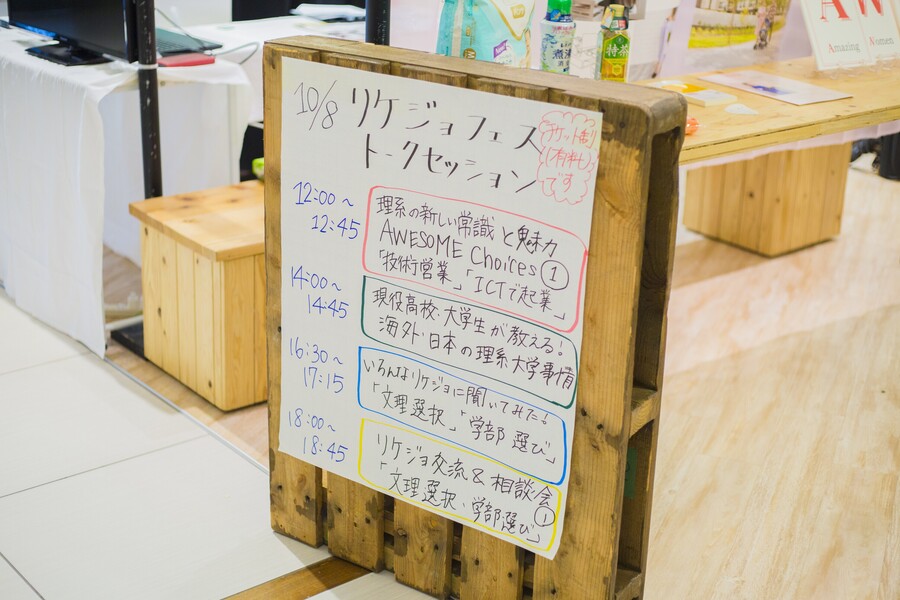 10/8
リケジョフェス
トークセッション
チケット制
(有料)
です
12:00～
12:45
理系の新しい常識と魅力
AWESOME Choices ①
「技術営業」「ICTで起業」
14:00～
14:45
現役高校・大学生が教える!
海外・日本の理系大学事情
16:30～
17:15
いろんなリケジョに聞いてみた!
「文理選択」「学部選び」
18:00～
18:45
リケジョ交流&相談会①
「文理選択・学部選び」
特茶
A
Amazing
Women